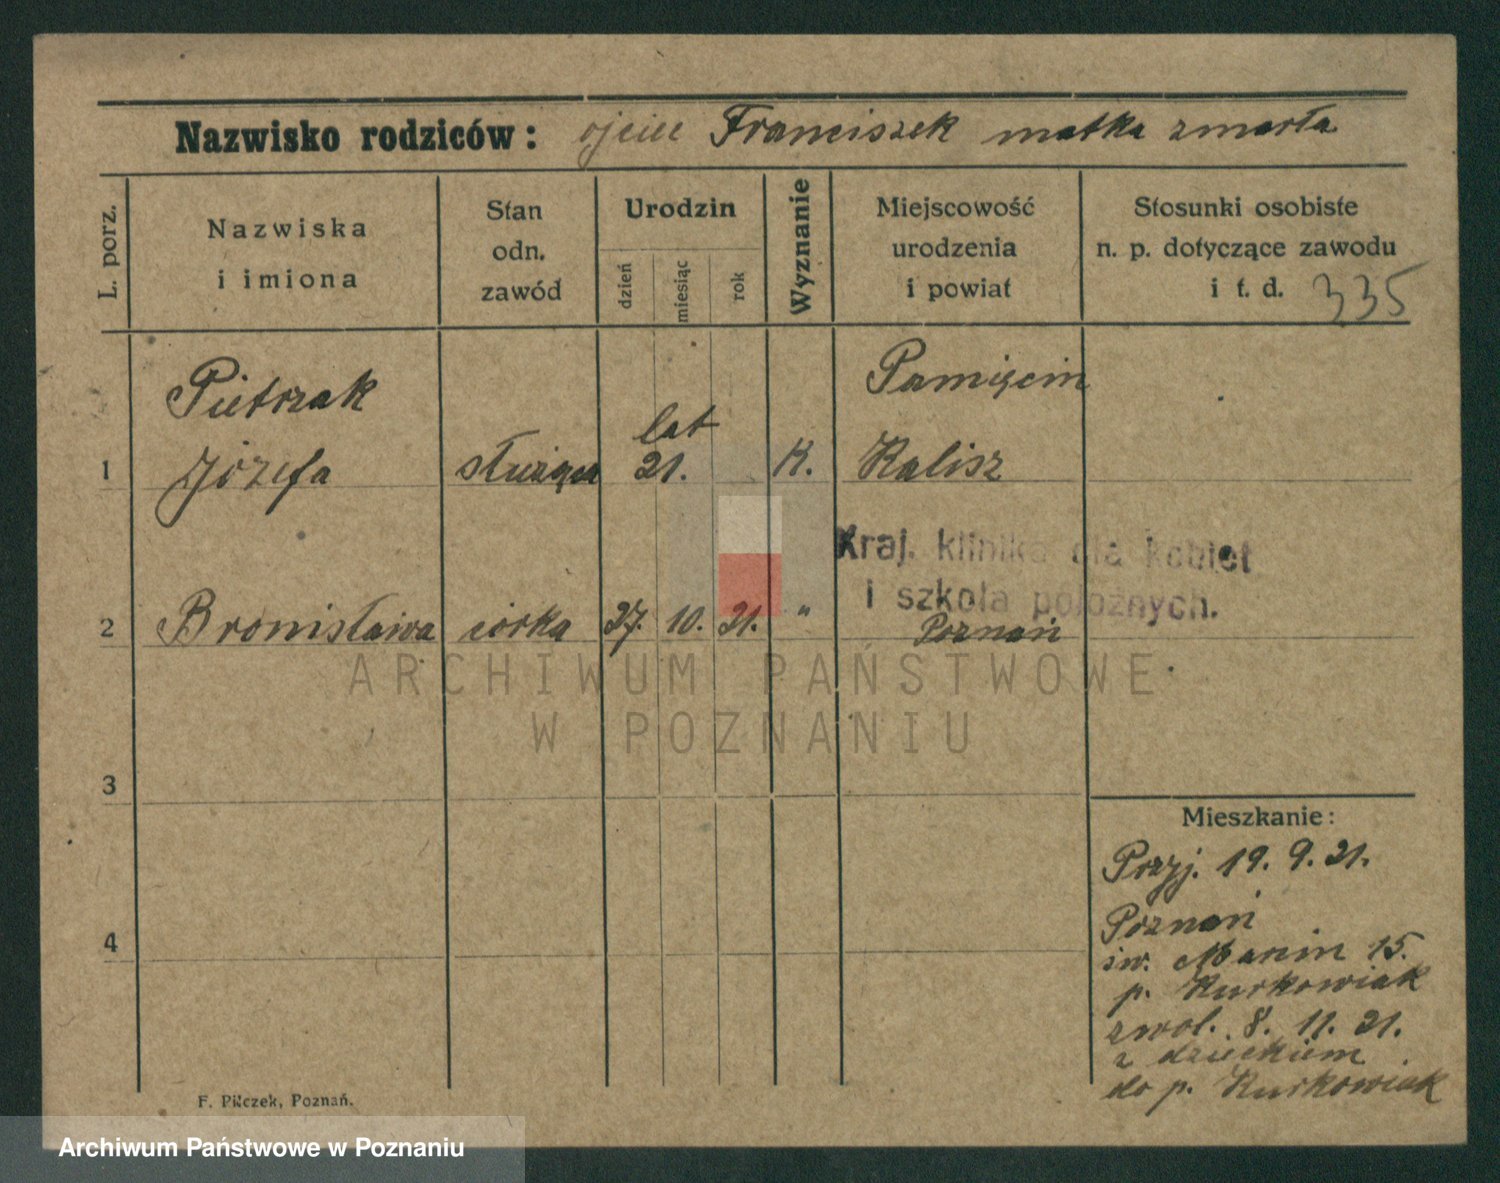 Nazwisko rodziców: ojciec Franciszek matka zmarła
L. porz.
Nazwiska
i imiona
Stan
odn.
zawód
Urodzin
dzień
miesiąc
rok
Wyznanie
Miejscowość
urodzenia
i powiat
Stosunki osobiste
n. p. dotyczące zawodu
i t. d. 335
Pietrzak
Pamięcin
lat
1 Józefa służąca 21. K. Kalisz
Kraj. klinika dla kobiet
i szkoła położnych.
2 Bronisława córka 27. 10. 21. " Poznań
ARCHIWUM PAŃSTWOWE
W POZNANIU
3
Mieszkanie:
Przyj. 19. 9. 21.
4
Poznań
św. Marcin 15.
p. Kurkowiak
zwol. 8. 11. 21.
z dzieckiem
do p. Kurkowiak
F. Pilczek, Poznań.
Archiwum Państwowe w Poznaniu